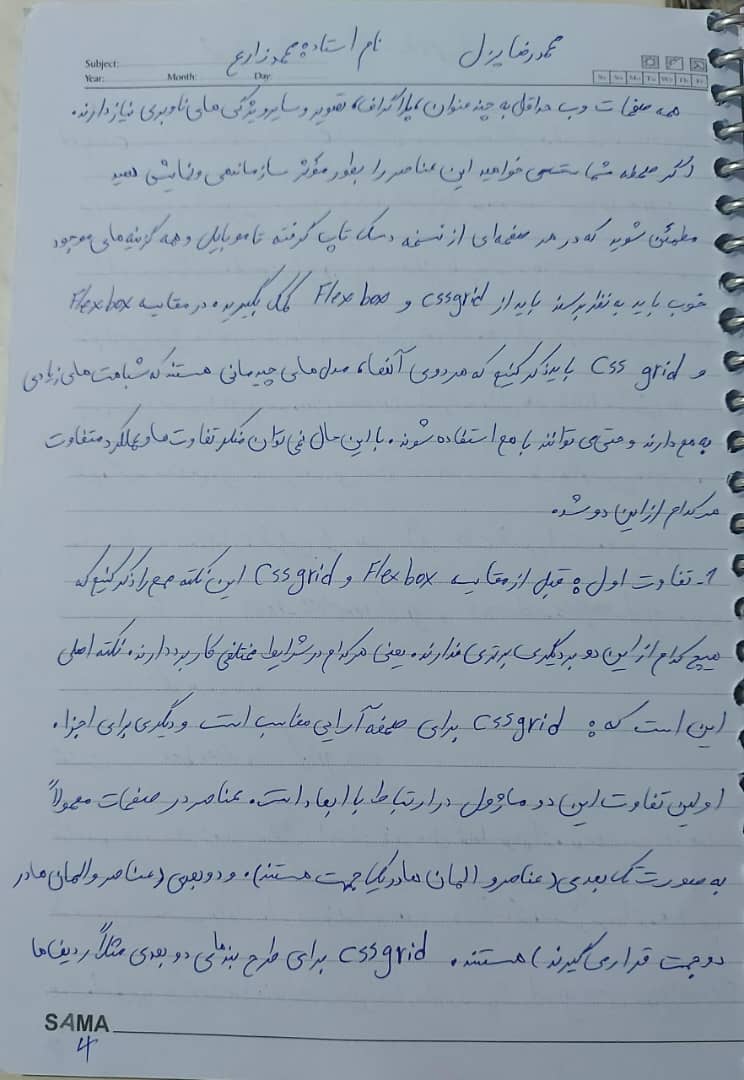 محمدرضا یزل نام استاد: محمد زارع
Subject:
Year: Month: Day:
Sa Su Mo Tu We Th Fr
همه صفحات وب حداقل به چند عنوان، پاراگراف، تصویر و سایر ویژگی های ناوبری نیاز دارند.
اگر شما می خواهید این عناصر را بطور مؤثر سازماندهی و نمایش دهید
مطمئن شوید که در هر صفحه ای از نسخه دسک تاپ گرفته تا موبایل و همه گزینه های موجود
خوب باید به نظر برسند باید از cssgrid و Flex box کمک بگیرید. در مقایسه Flex box
و Css grid باید ذکر کنیم که هر دوی آنها، مدل های چیدمانی هستند که شباهت های زیادی
به هم دارند و حتی می توانند با هم استفاده شوند. با این حال نمی توان منکر تفاوت ها و عملکرد متفاوت
هر کدام از این دو شد.
1- تفاوت اول: قبل از مقایسه Flex box و Css grid این نکته مهم را ذکر کنیم که
هیچ کدام از این دو بر دیگری برتری ندارند. یعنی هر کدام در شرایط مختلفی کاربرد دارند. نکته اصلی
این است که: cssgrid برای صفحه آرایی مناسب است و دیگری برای اجزا.
اولین تفاوت این دو ماژول در ارتباط با ابعاد است. عناصر در صفحات معمولاً
به صورت تک بعدی (عناصر و المان ها در یک جهت هستند). و دو بعدی (عناصر و المان ها در
دو جهت قرار می گیرند) هستند. cssgrid برای طرح بندهای دو بعدی مثلاً ردیف ها
SAMA
4